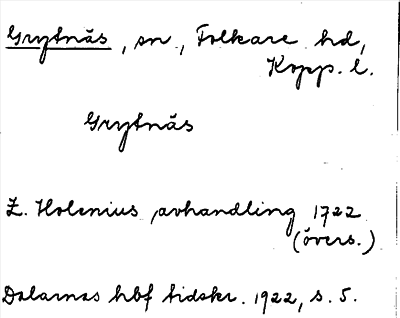 Grytnäs, sn, Folkare hd,
Kopp. l.
Grytnäs
Z. Holenius avhandling 1722
(övers.)
Dalarnas hbf tidskr. 1922, s. 5.